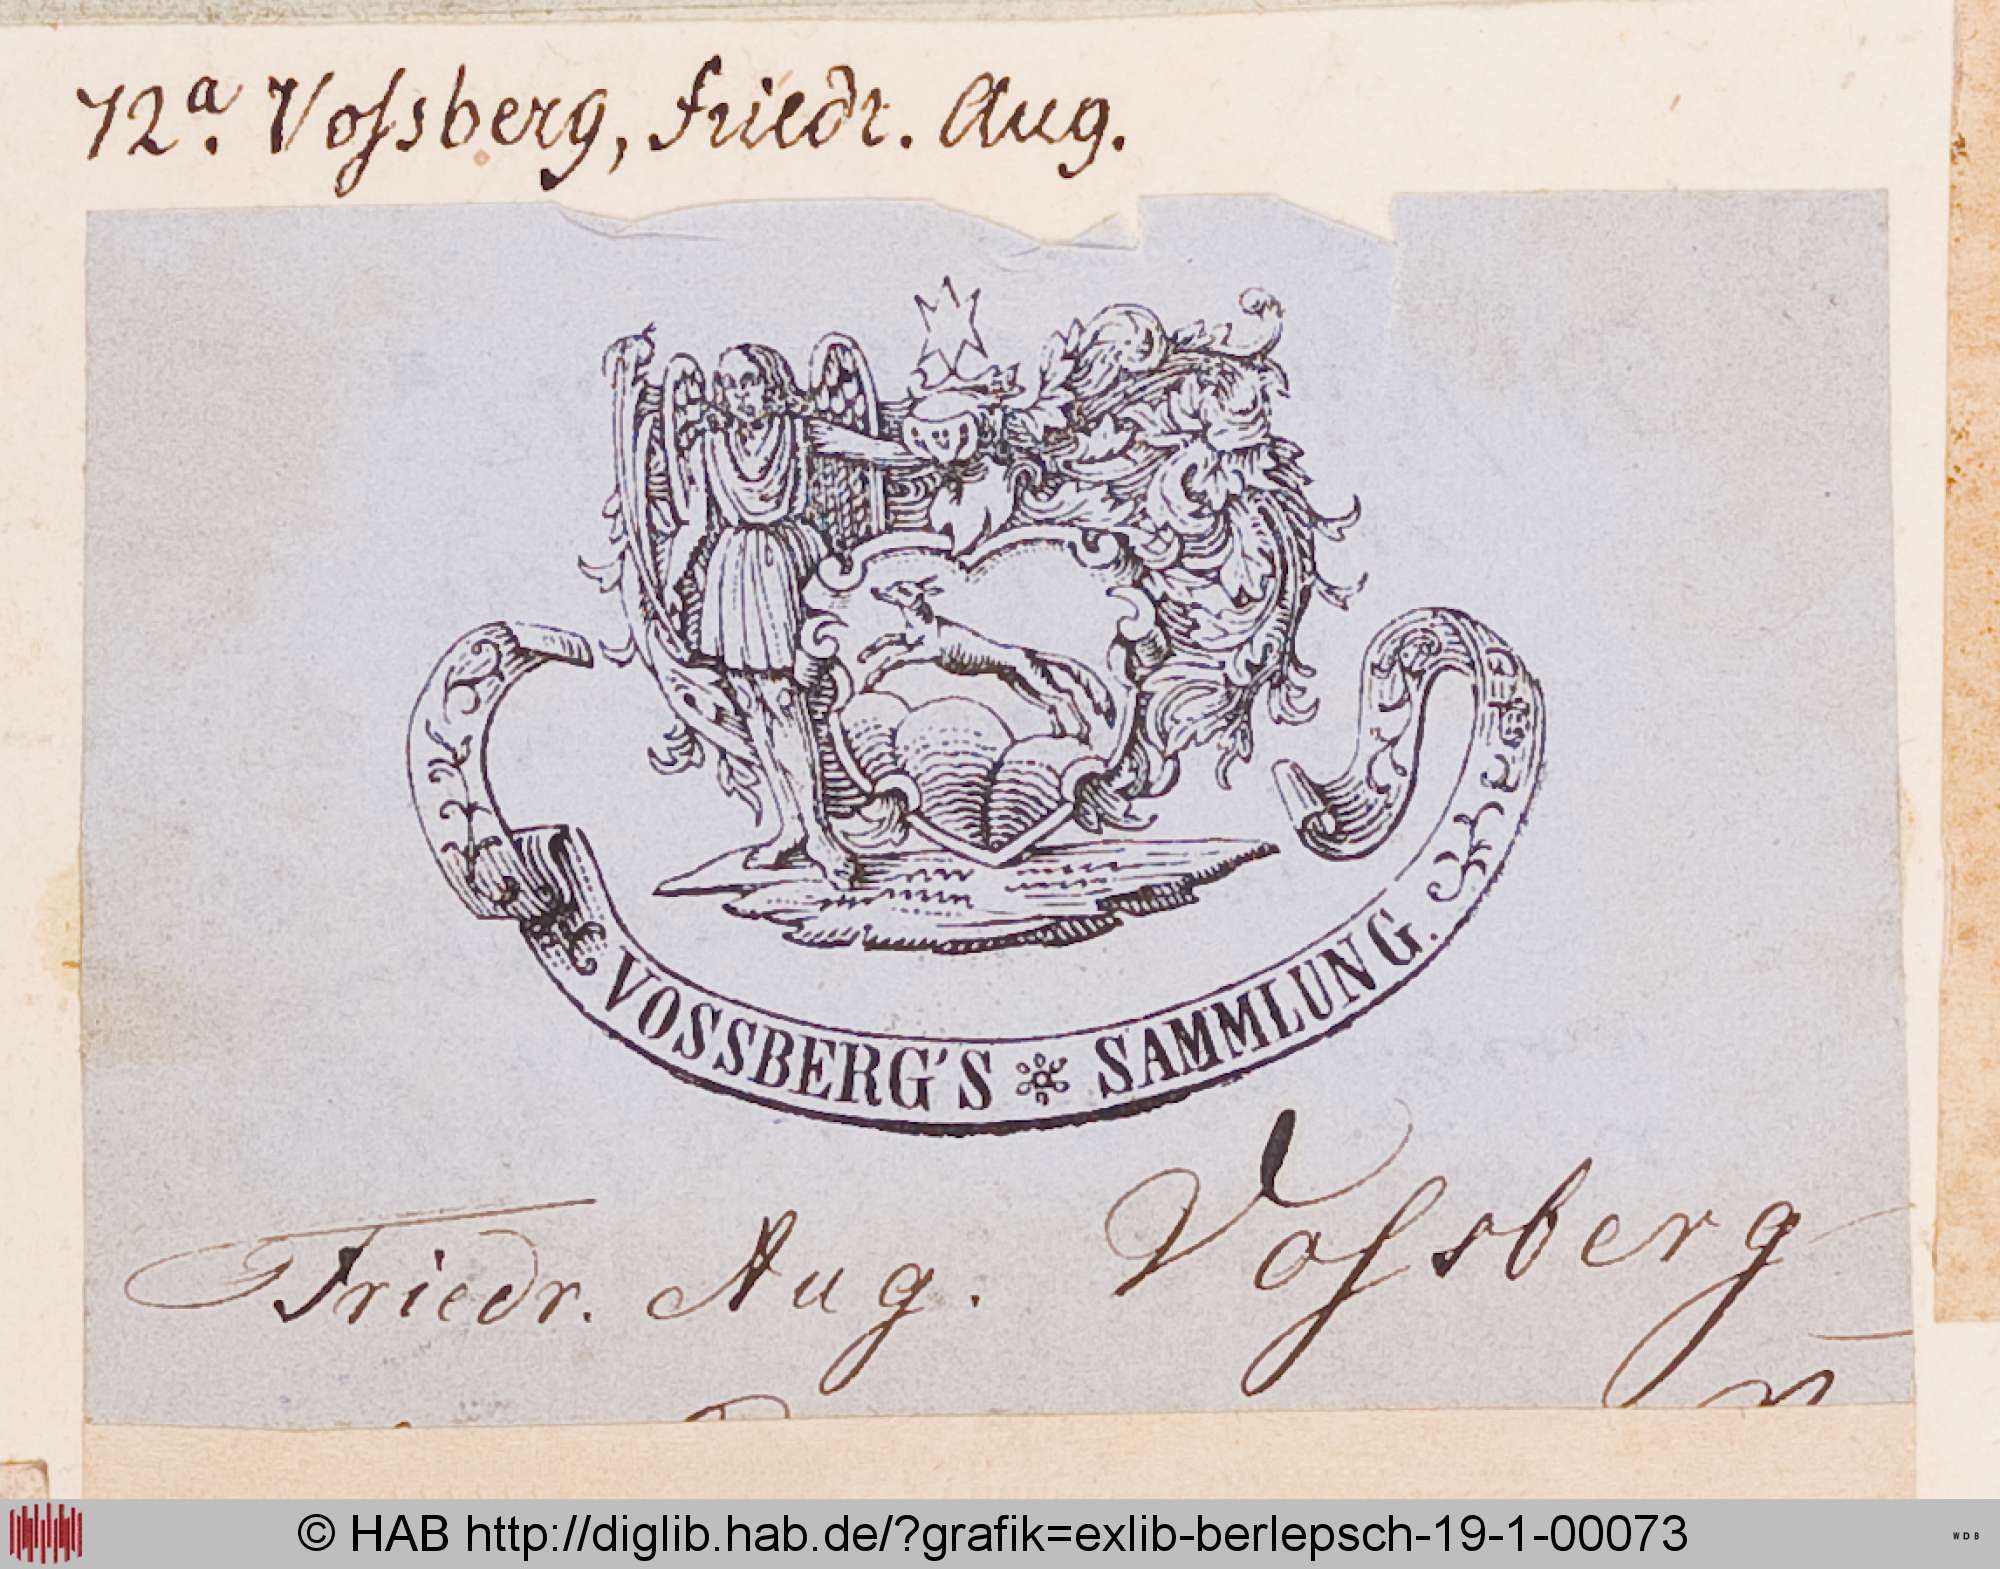 72a. Voſsberg, Friedr. Aug.
VOSSBERG'S * SAMMLUNG.
Friedr. Aug. Voſsberg
© HAB http://diglib.hab.de/?grafik=exlib-berlepsch-19-1-00073
WDB